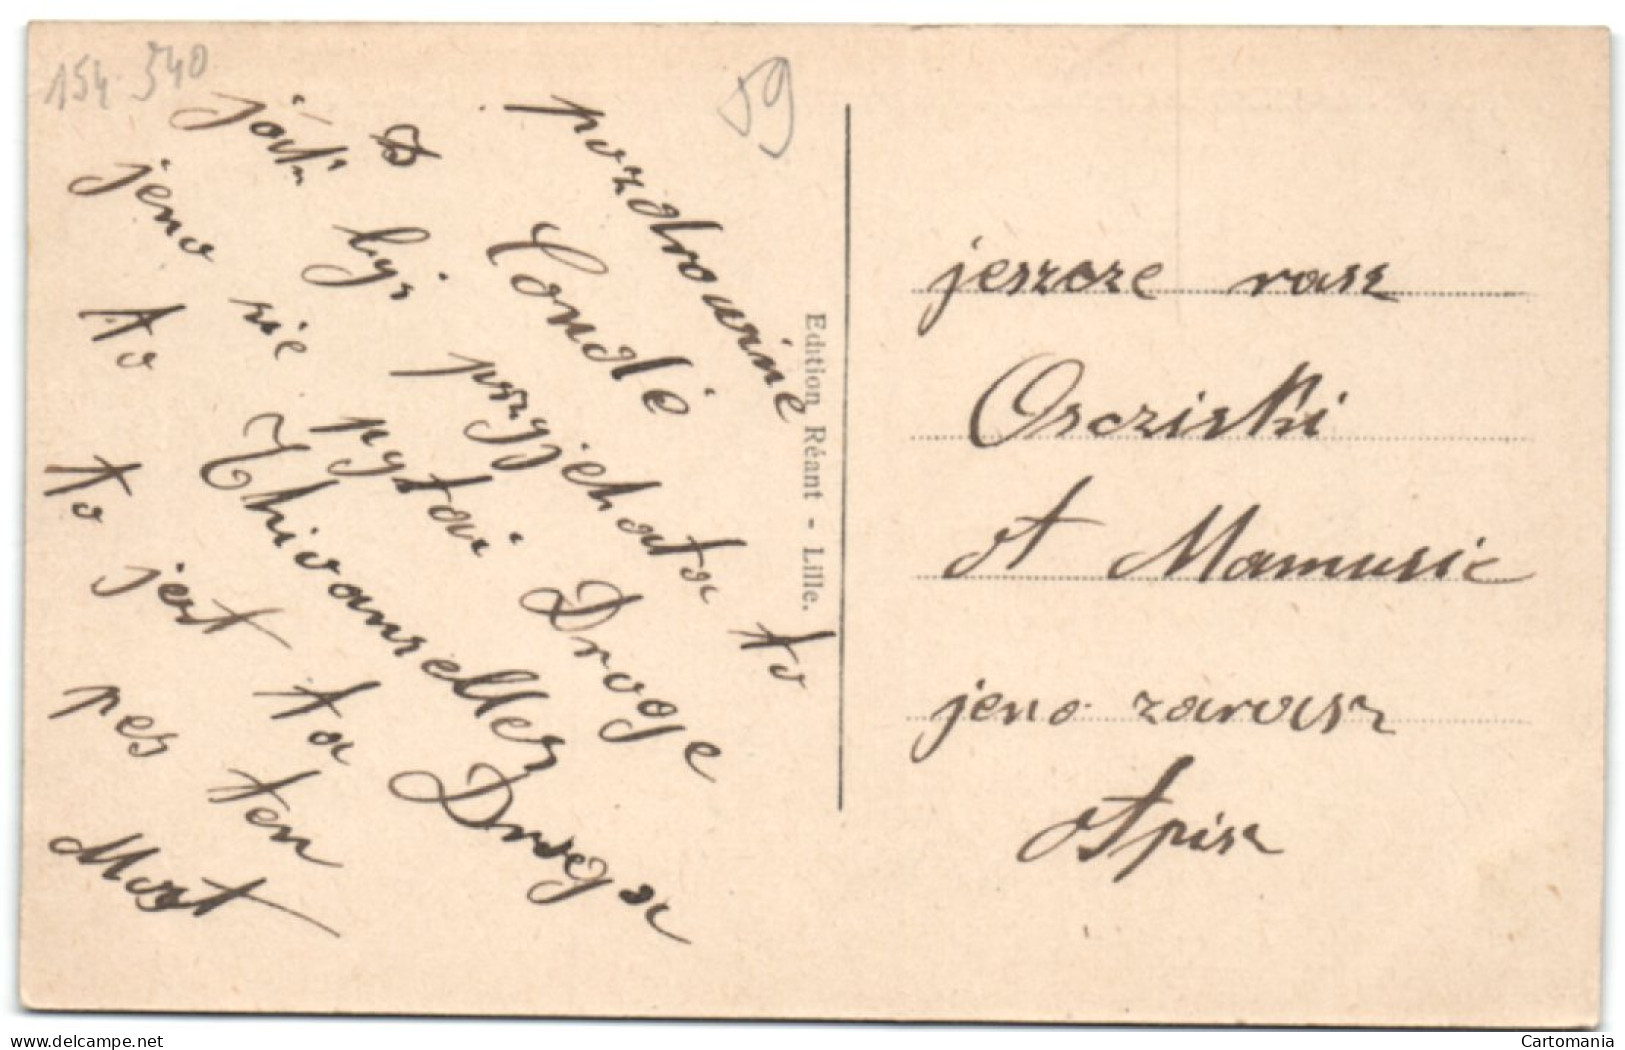 154 540
59
pozdrowine
z Condé
jak bys przyjehata to
jeno sie pytai Droge
to Thivanselles
to jest ta Droga
pes ten
Most
Edition Réant - Lille.
jeszcze rasz
Oscziski
A Mamusie
jeno zarasz
Apisz
delcampe.net
Cartomania